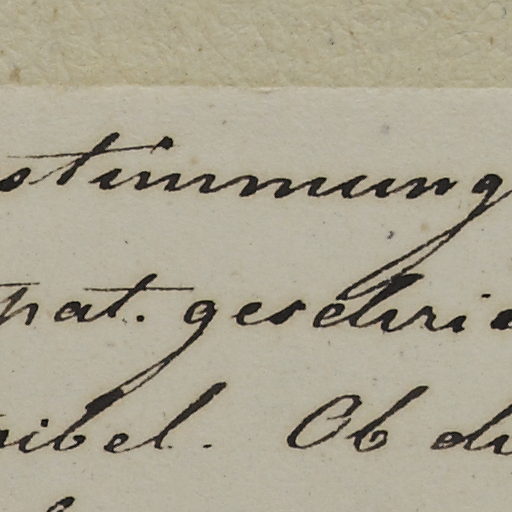 stimmung
pat. geschrie
ibel. Ob du